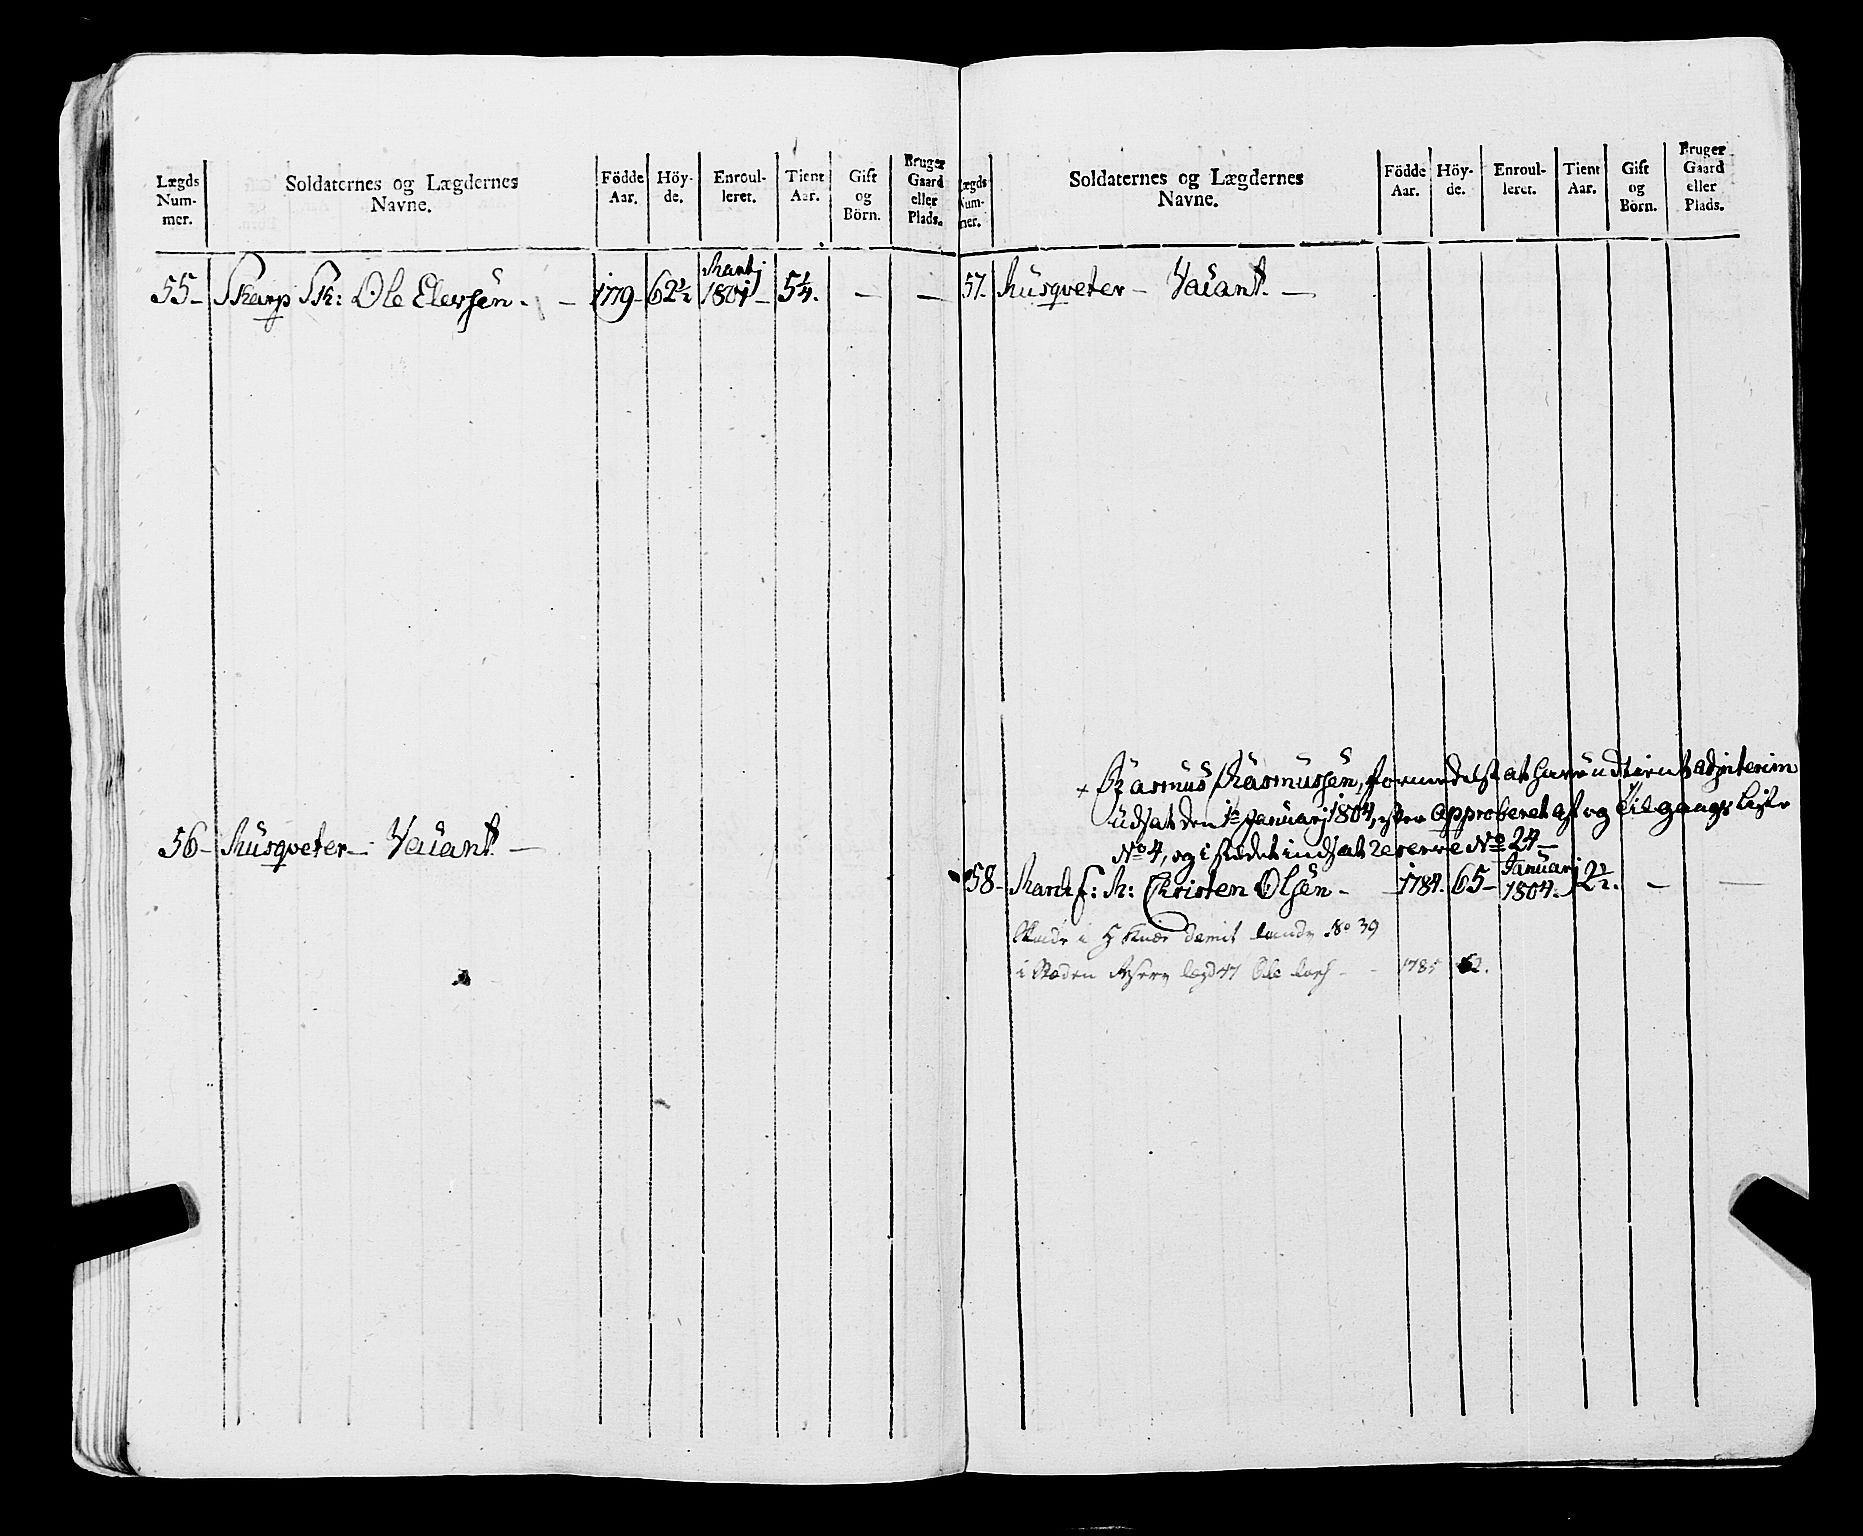 Lægds Num- mer. Soldaternes og Lægdernes Navne. Födde Aar. Höy- de. Enroul- leret. Tient Aar. Gift og Börn. Bruger Gaard eller Plads.
55- Skarp Sk: Ole Elersen. - 1779- 62½ Martj 1801- 5¼. - -
56- Musqveter- Vacant. -
Lægds Num- mer. Soldaternes og Lægdernes Navne. Födde Aar. Höy- de. Enroul- leret. Tient Aar. Gift og Börn. Bruger Gaard eller Plads.
57- Musqveter- Vacant. -
+ Rasmus Rasmussen, formedelst at have udtient adjnterim
udsat den 1te Januarj 1804, efter Approberet af og Tilgangs Liste
No 4, og i stedet indsat Reserve No 24-
58- Marck f: M: Christen Olsen - 1784. 65- Januarj 1804. 2½. - -
No 39
i Steden Reserv lægd 47 Ole - - 1785 62.